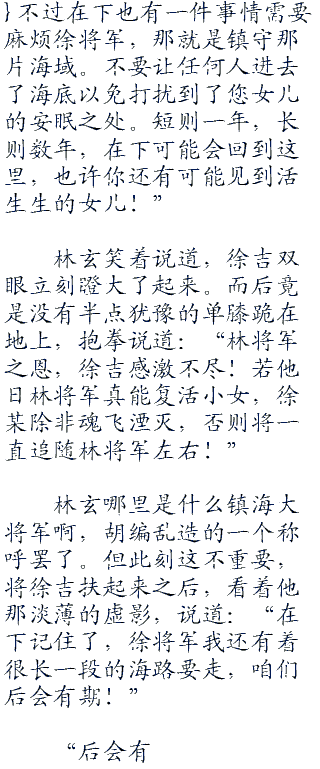 }不过在下也有一件事情需要
麻烦徐将军，那就是镇守那
片海域。不要让任何人进去
了海底以免打扰到了您女儿
的安眠之处。短则一年，长
则数年，在下可能会回到这
里，也许你还有可能见到活
生生的女儿！”
林玄笑着说道，徐吉双
眼立刻蹬大了起来。而后竟
是没有半点犹豫的单膝跪在
地上，抱拳说道：“林将军
之恩，徐吉感激不尽！若他
日林将军真能复活小女，徐
某除非魂飞湮灭，否则将一
直追随林将军左右！”
林玄哪里是什么镇海大
将军啊，胡编乱造的一个称
呼罢了。但此刻这不重要，
将徐吉扶起来之后，看着他
那淡薄的虚影，说道：“在
下记住了，徐将军我还有着
很长一段的海路要走，咱们
后会有期！”
“后会有